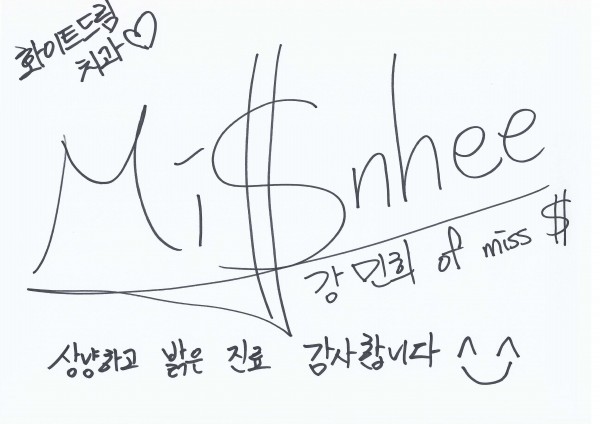 화이트드림
치과♡
Mi$nhee
강민희 of miss $
상냥하고 밝은 진료 감사합니다 ^‿^